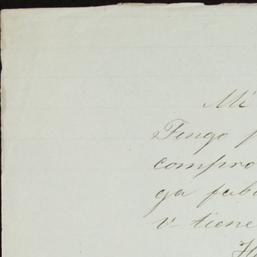 Mi
Tengo p
compro
ga fab
v. tiene